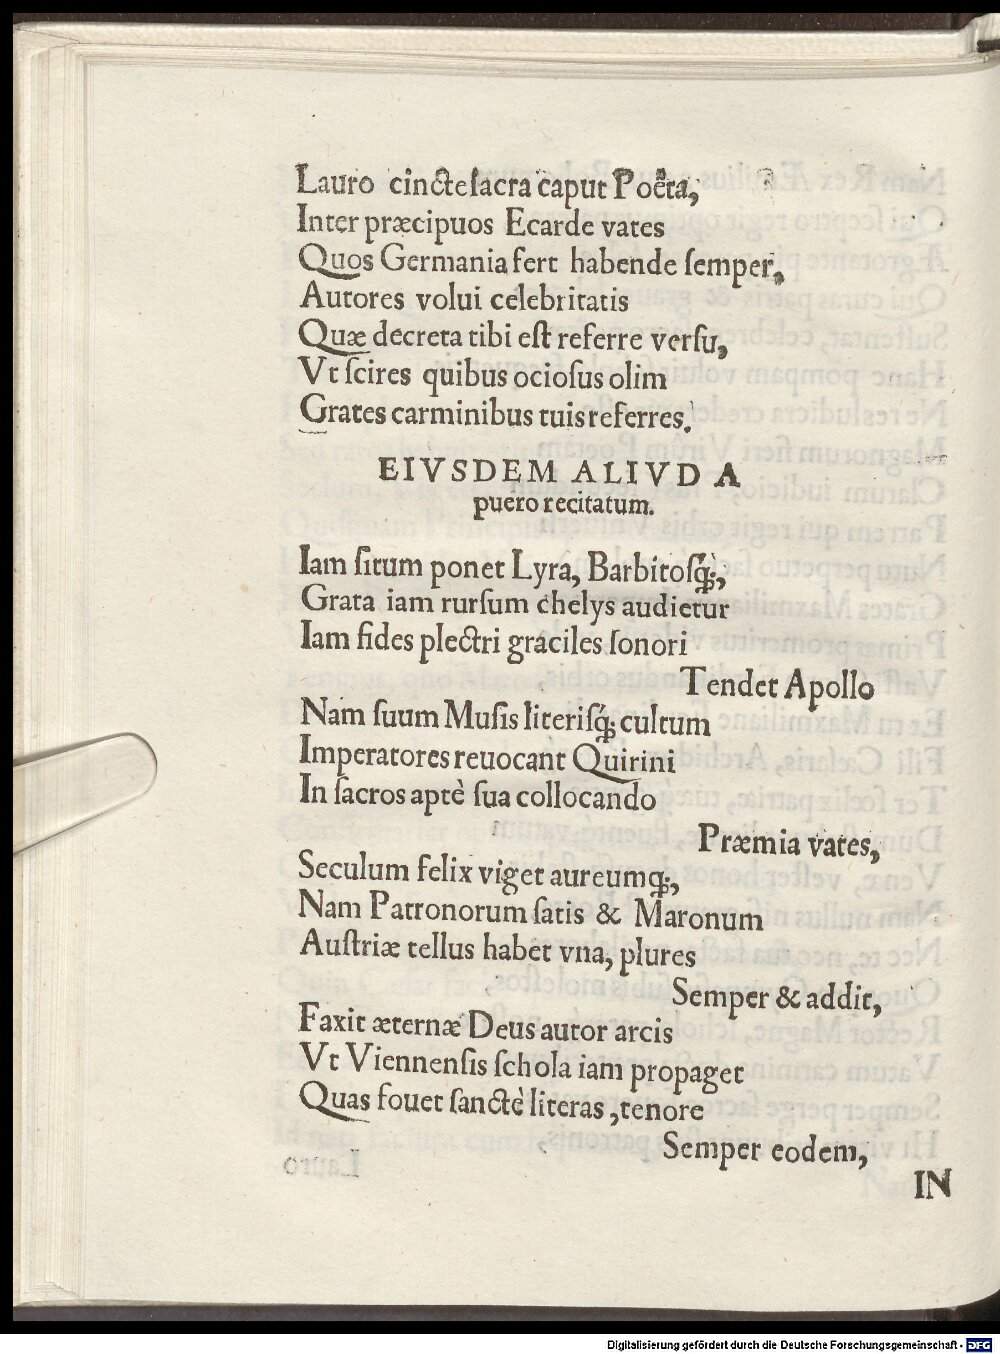 Lauro cincte ſacra caput Poëta,
Inter præcipuos Ecarde vates
Quos Germania fert habende ſemper,
Autores volui celebritatis
Quæ decreta tibi eſt referre verſu,
Vt ſcires quibus ocioſus olim
Grates carminibus tuis referres.
EIVSDEM ALIVD A
puero recitatum.
Iam ſitum ponet Lyra, Barbitoſq́;,
Grata iam rurſum chelys audietur
Iam fides plectri graciles ſonori
Tendet Apollo
Nam ſuum Muſis literiſq́; cultum
Imperatores reuocant Quirini
In ſacros aptè ſua collocando
Præmia vates,
Seculum felix viget aureumq́;,
Nam Patronorum ſatis & Maronum
Auſtriæ tellus habet vna, plures
Semper & addit,
Faxit æternæ Deus autor arcis
Vt Viennenſis ſchola iam propaget
Quas fouet ſanctè literas, tenore
Semper eodem,
IN
Digitalisierung gefördert durch die Deutsche Forschungsgemeinschaft - DFG